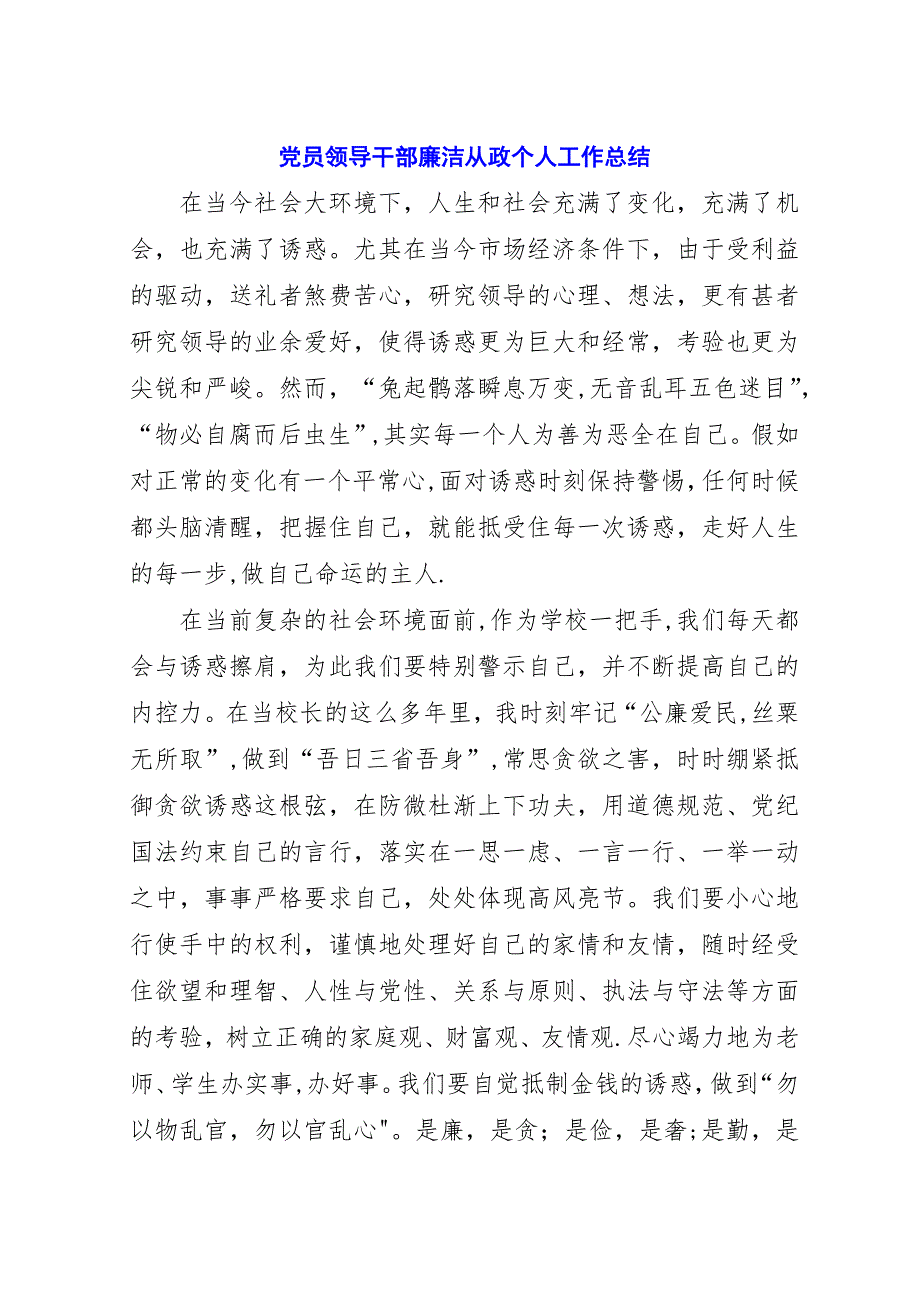 党员领导干部廉洁从政个人工作总结
在当今社会大环境下，人生和社会充满了变化，充满了机
会，也充满了诱惑。尤其在当今市场经济条件下，由于受利益
的驱动，送礼者煞费苦心，研究领导的心理、想法，更有甚者
研究领导的业余爱好，使得诱惑更为巨大和经常，考验也更为
尖锐和严峻。然而，“兔起鹘落瞬息万变,无音乱耳五色迷目”，
“物必自腐而后虫生”,其实每一个人为善为恶全在自己。假如
对正常的变化有一个平常心,面对诱惑时刻保持警惕，任何时候
都头脑清醒，把握住自己，就能抵受住每一次诱惑，走好人生
的每一步,做自己命运的主人.
在当前复杂的社会环境面前,作为学校一把手,我们每天都
会与诱惑擦肩，为此我们要特别警示自己，并不断提高自己的
内控力。在当校长的这么多年里，我时刻牢记“公廉爱民,丝粟
无所取”,做到“吾日三省吾身”,常思贪欲之害，时时绷紧抵
御贪欲诱惑这根弦，在防微杜渐上下功夫，用道德规范、党纪
国法约束自己的言行，落实在一思一虑、一言一行、一举一动
之中，事事严格要求自己，处处体现高风亮节。我们要小心地
行使手中的权利，谨慎地处理好自己的家情和友情，随时经受
住欲望和理智、人性与党性、关系与原则、执法与守法等方面
的考验，树立正确的家庭观、财富观、友情观.尽心竭力地为老
师、学生办实事,办好事。我们要自觉抵制金钱的诱惑，做到“勿
以物乱官，勿以官乱心"。是廉，是贪；是俭，是奢;是勤，是